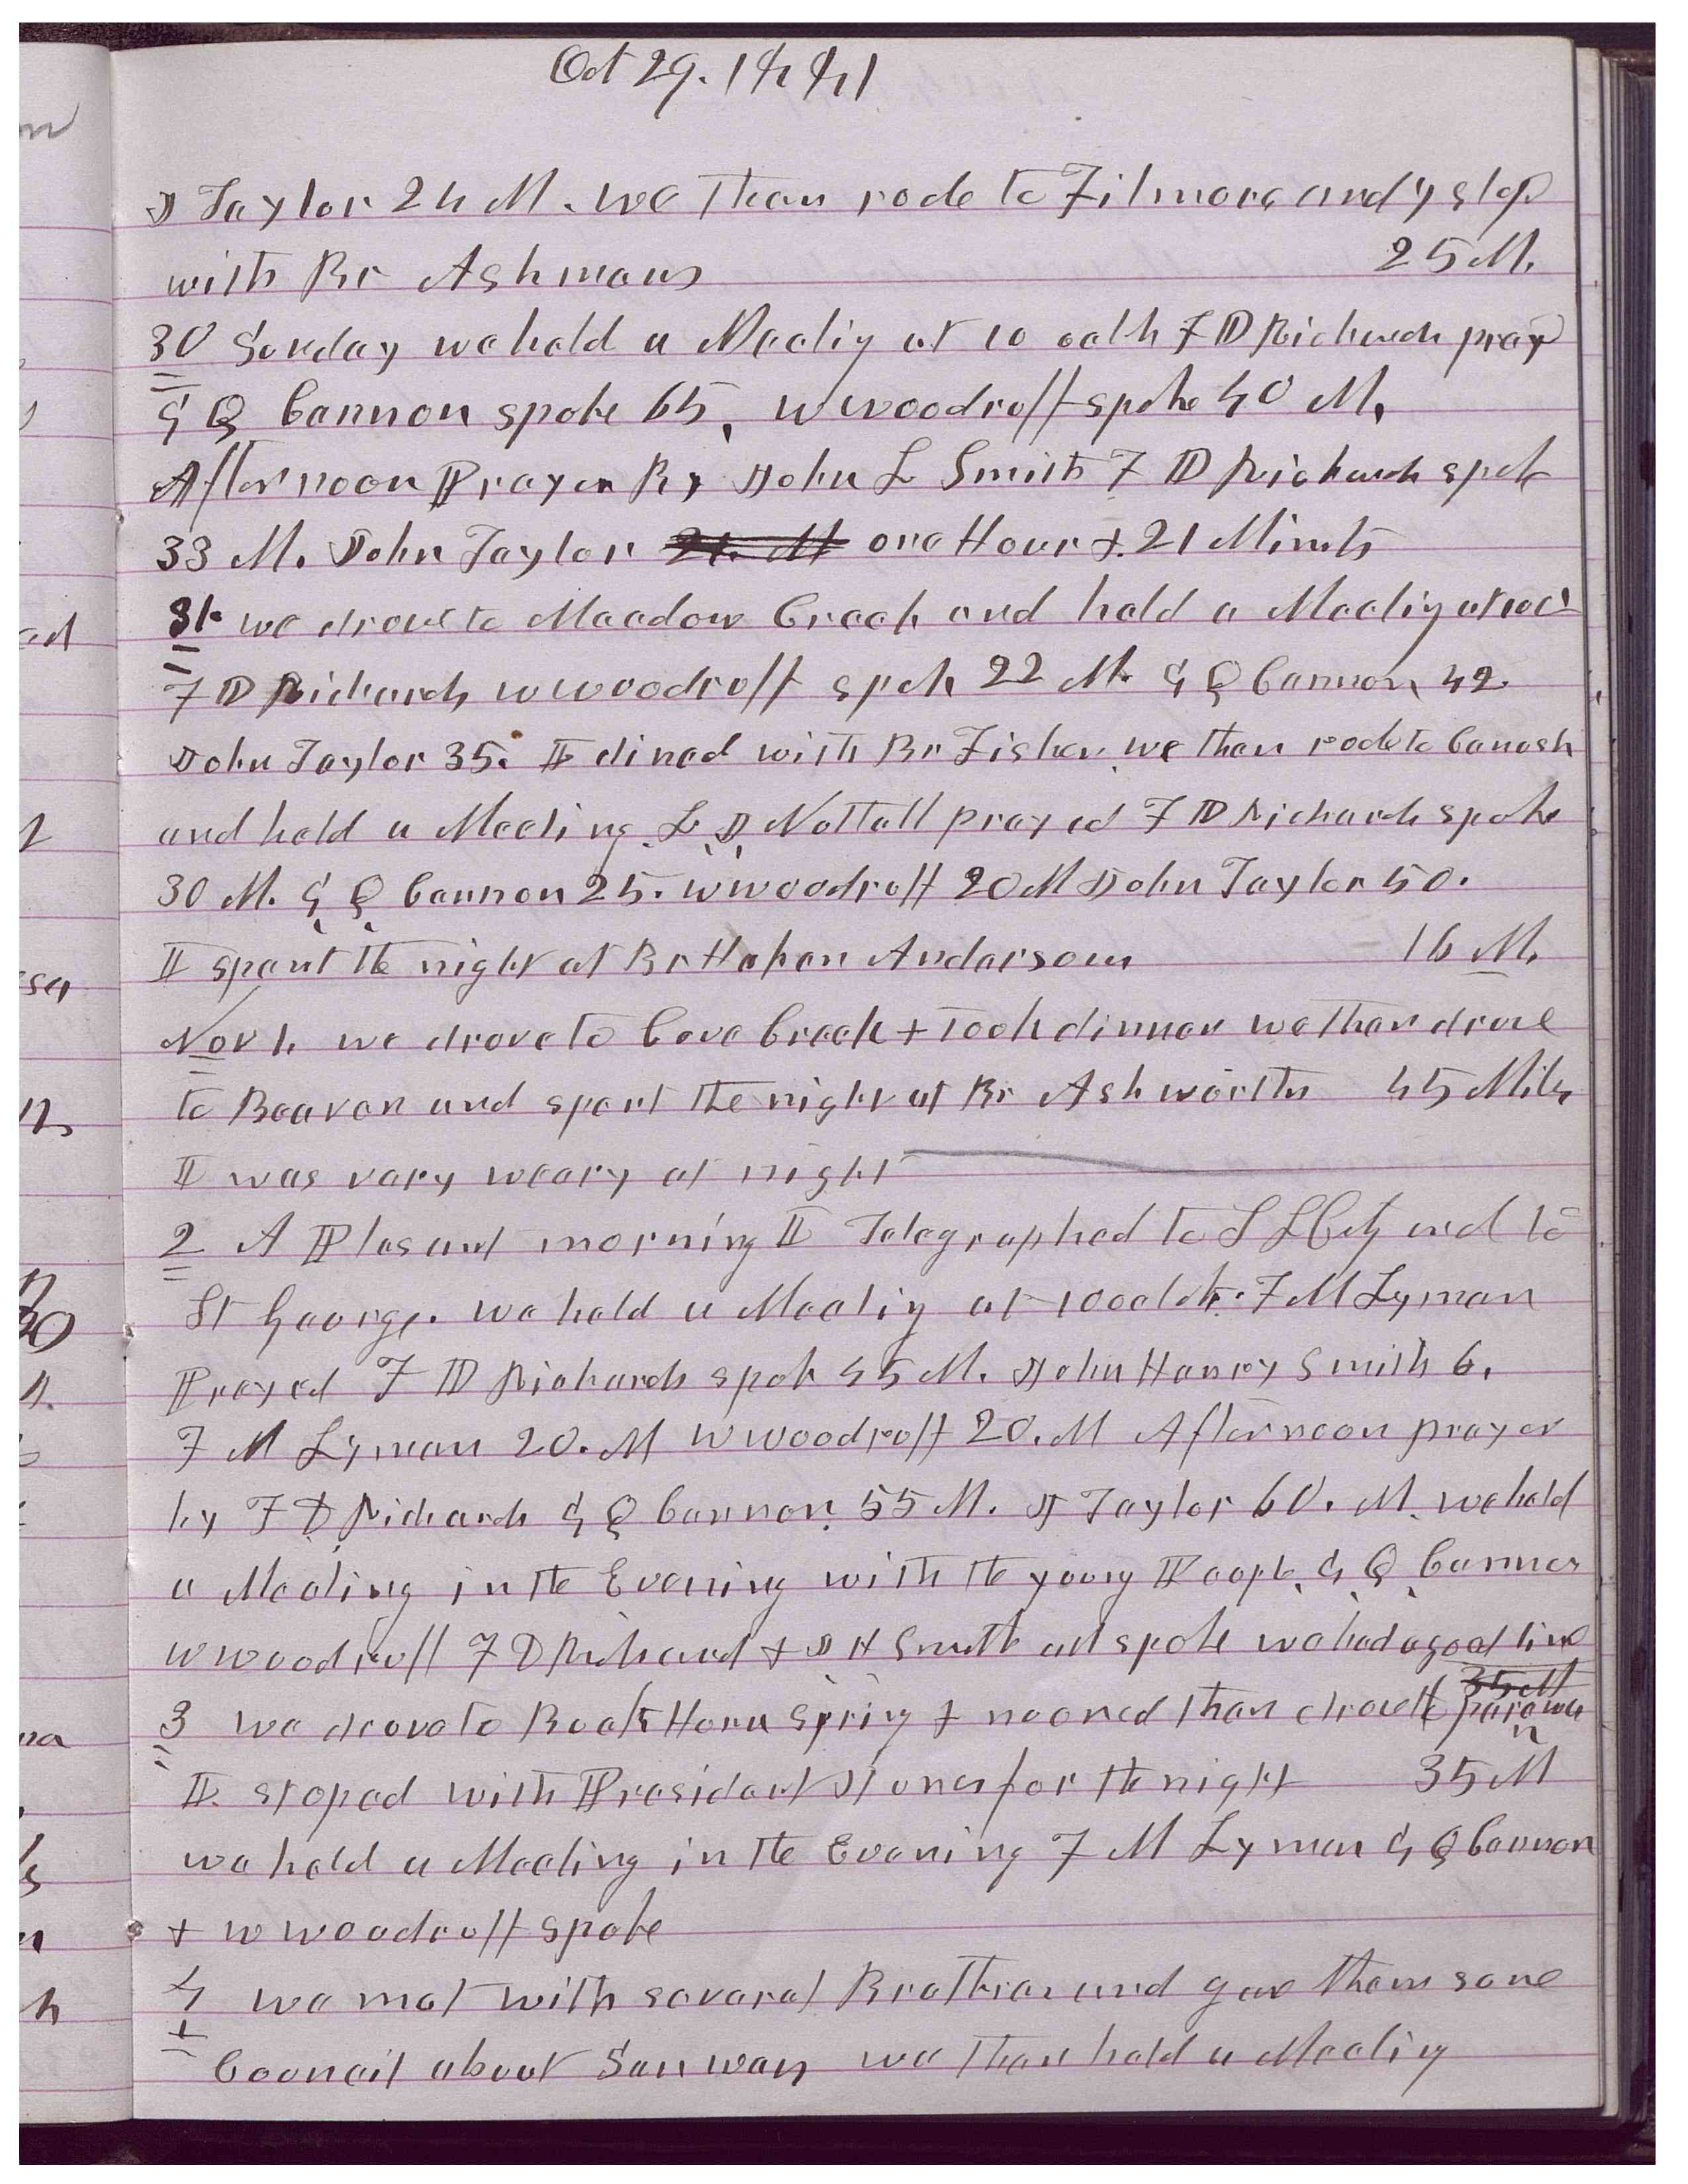 Oct 29. 1881
J Taylor 24 M. we then rode to Filmore and stop
with Br Ashmans 25 M.
30 Sunday we held a Meeting at 10 oclk F D Richards pray
G Q Cannon spoke 65, W Woodruff spoke 40 M,
Afternoon Prayer By John L Smith F D Richards spok
33 M. John Taylor 21. M one Hour & 21 Minuts
31. we drove to Meadow Creek and held a Meetig at
F D Richards W Woodruff spok 22 M. G Q Cannon 42
John Taylor 35. I dined with Br Fisher we then rode to Canosh
and held a Meeting. L J Nuttall prayed F D Richards spoke
30 M. G Q Cannon 25. W Woodruff 20 M John Taylor 50.
I spent the night at Br Hakan Andersons 16 M.
Nov 1. we drove to Cove Creek & took dinner we then drove
to Beaver and spent the night at Br Ashworths 45 Miles
I was very weary at night
2 A Plesant morning I Telegraphed to S L City and to
St George. we held a Meetig at 10 oclok. F M Lyman
Prayed F D Richards spok 45 M. John Henry Smith 6.
F M Lyman 20. M W Woodruff 20. M Afternoon prayer
by F D Richards G Q Cannon 55 M. J Taylor 60. M. we held
a Meeting in the Evening with the young People. G Q Cannon
W Woodruff F D Richard & J H Smith all spoke we had a good time
35 M
3 we drove to Buck Horn Spring & nooned then drove to parowan
I stoped with President Jones for the night 35 M
we held a Meeting in the Evening F M Lyman G Q Cannon
& W Woodruff spoke
4 we met with several Brethren and gave them some
Council about San Wan we then held a Meetig